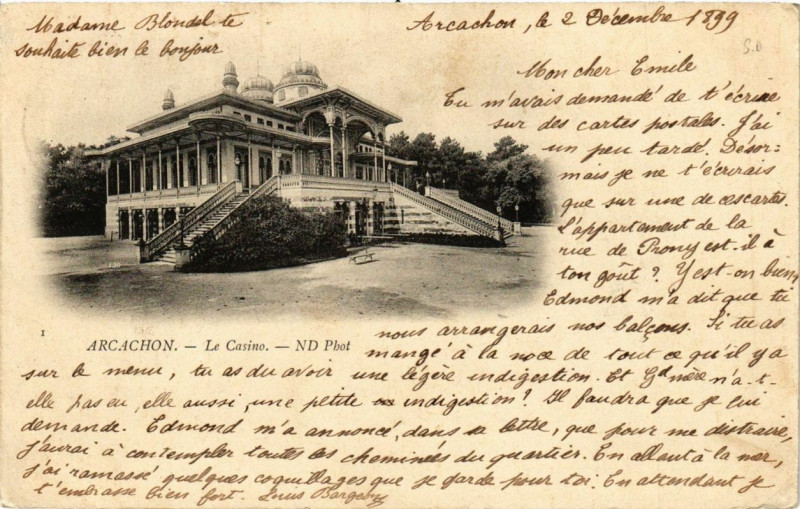 Madame Blondel te
souhaite bien le bonjour
Arcachon, le 2 Décembre 1899
S.D
Mon cher Emile
Tu m'avais demandé de t'écrire
sur des cartes postales. J'ai
un peu tardé. Désor=
mais je ne t'écrirais
que sur une de ces cartes.
L'appartement de la
rue de Prony est-il à
ton goût ? Y est-on bien,
Edmond m'a dit que tu
nous arrangerais nos balçons. Si tu as
mangé à la noce de tout ce qu'il y a
sur le menu, tu as du avoir une légère indigestion. Et Gd mère n'a-t-
elle pas eu, elle aussi, une petite indigestion ? Il faudra que je lui
demande. Edmond m'a annoncé, dans sa lettre, que pour me distraire,
j'aurai à contempler toutes les cheminées du quartier. En allant à la mer,
j'ai ramassé quelques coquillages que je garde pour toi. En attendant je
t'embrasse bien fort. Louis
1
ARCACHON. — Le Casino. — ND Phot